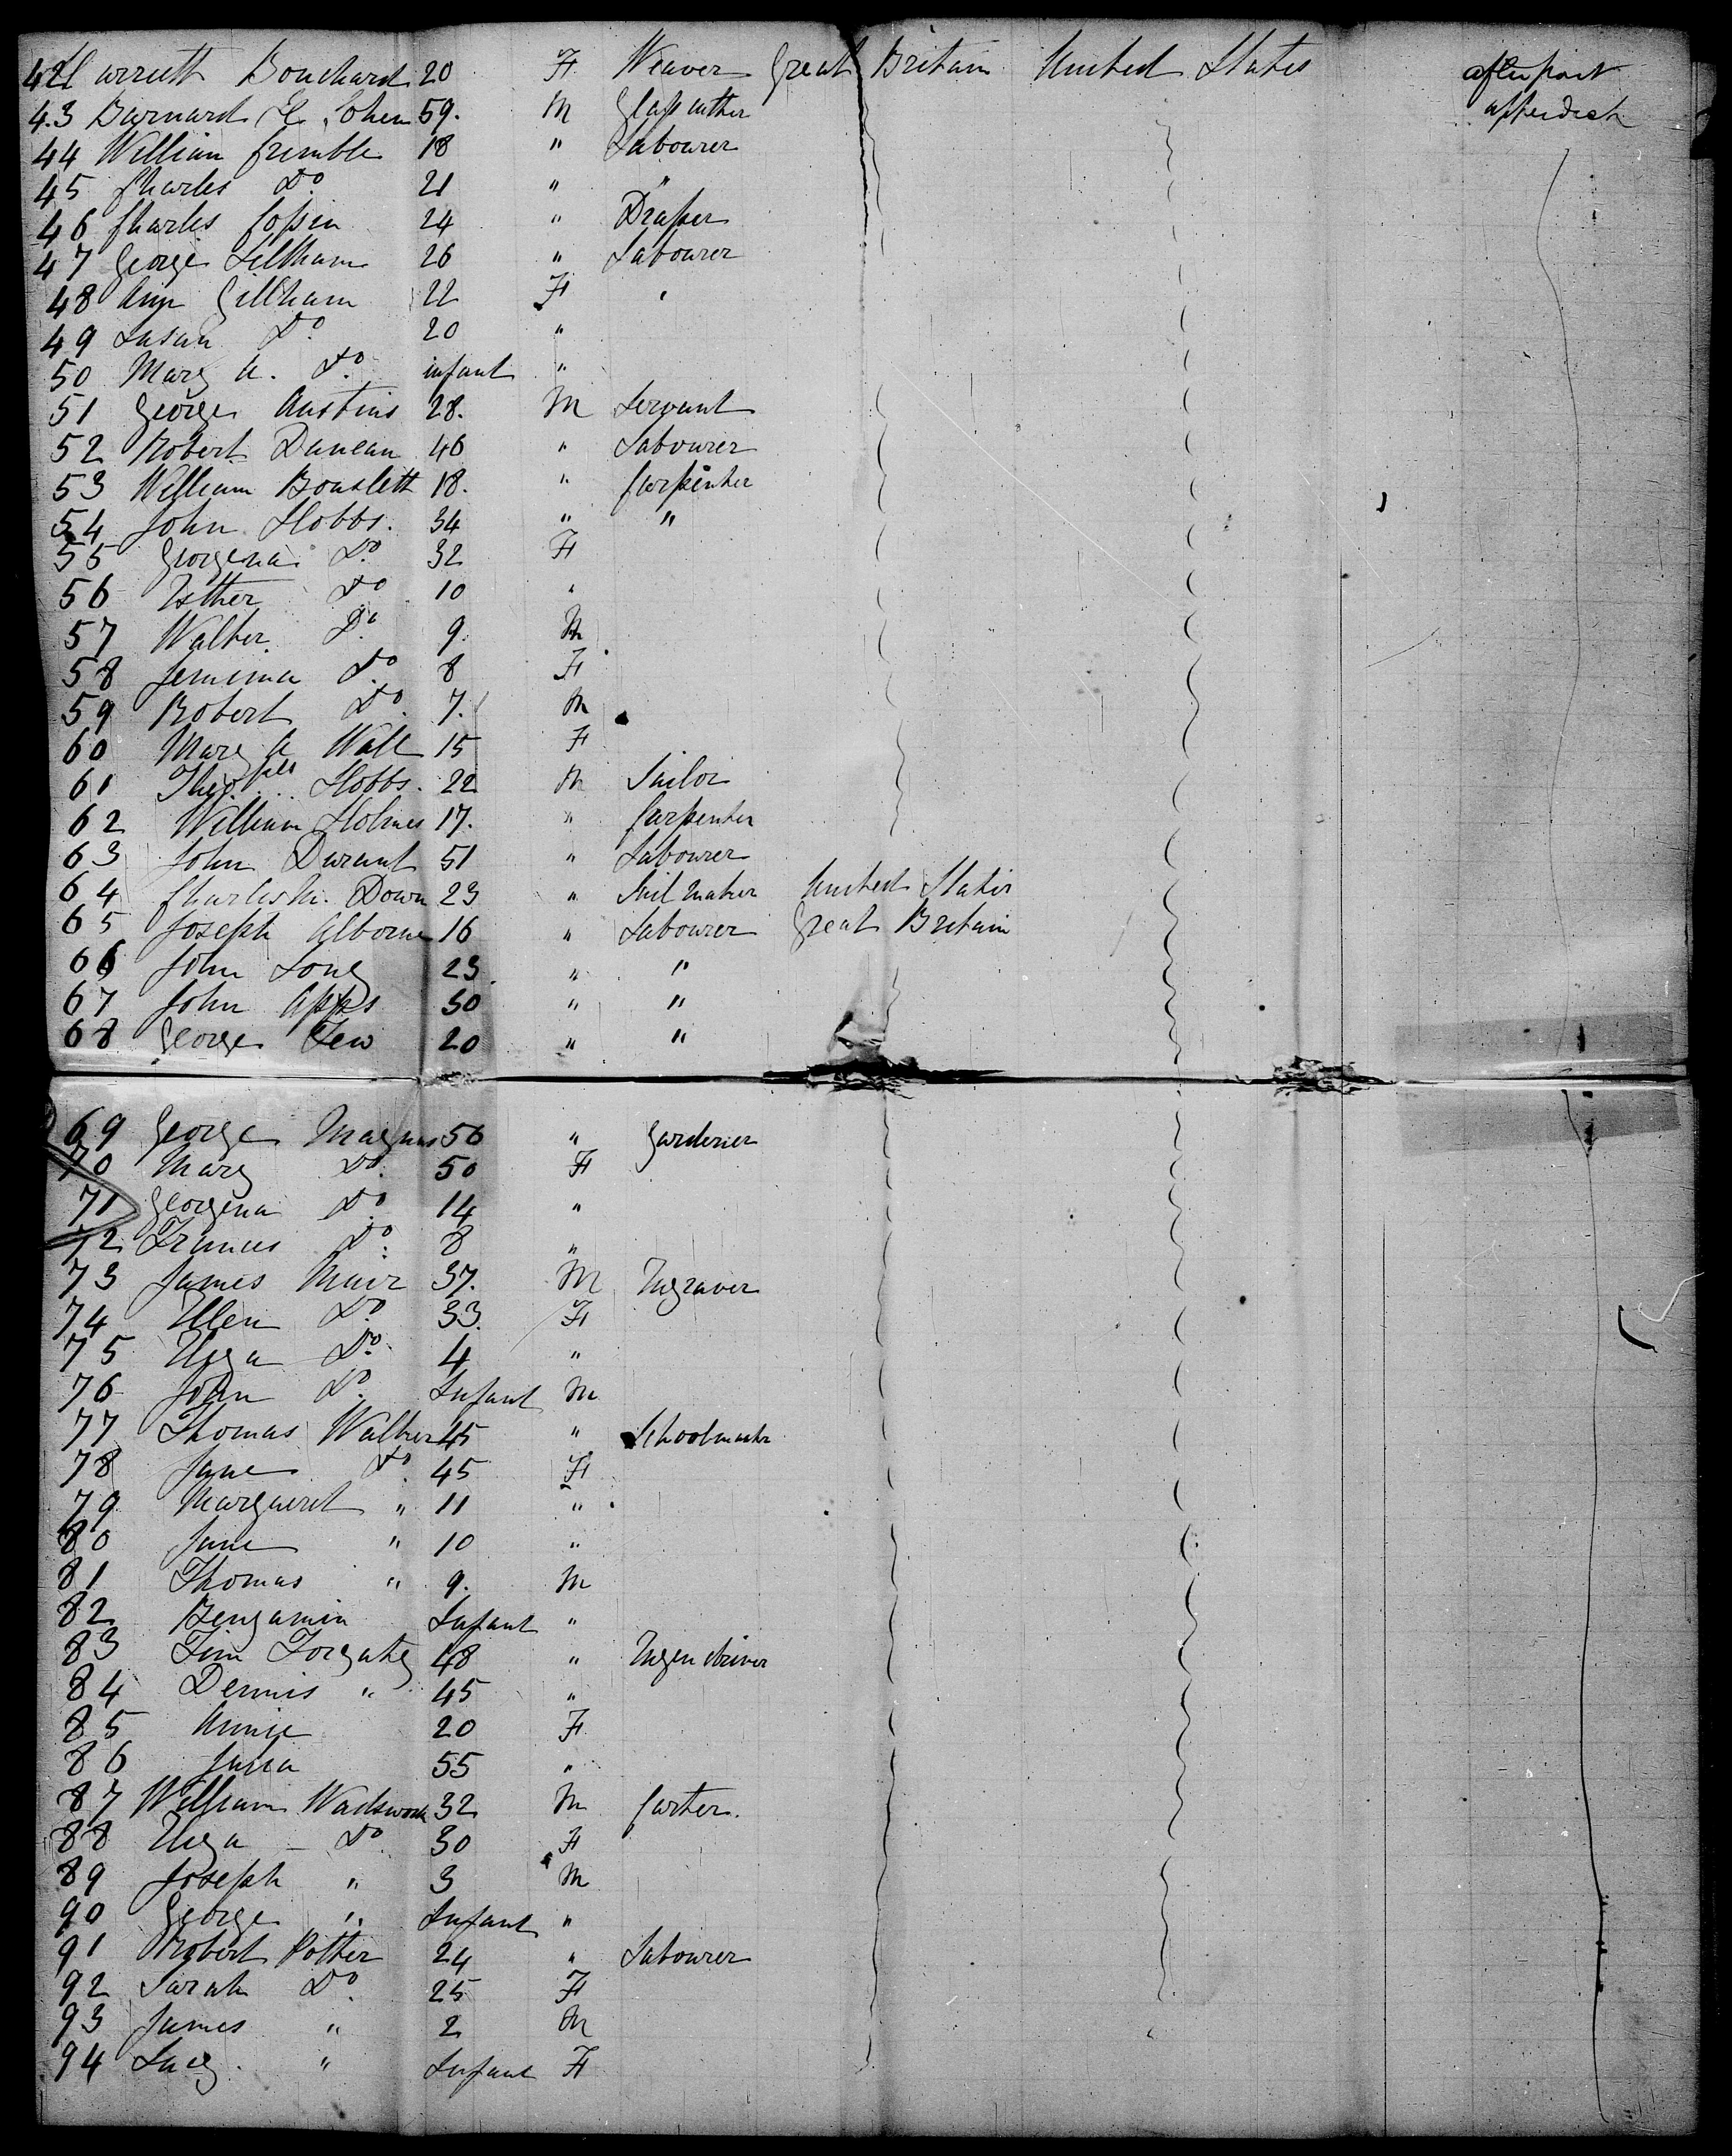 42 Harriett Bouchard 20 F Weaver Great Britain United States after part
43 Barnard E. Cohen 59. M Glass cutter after deck
44 William Crimble 18 " Labourer
45 Charles Do. 21 " "
46 Charles 24 " Draper
47 George 26 " Labourer
48 Ann Gillham 22 F "
49 Susan Do 20 "
50 Mary A. Do. infant "
51 George Austins 28. M Servant
52 Robert Duncan 46 " Labourer
53 William 18. " Carpenter
54 John Hobbs. 34 " "
55 Georgena Do. 32 F
56 Esther Do 10 "
57 Walter. Do. 9. M
58 Jemima Do. 8 F
59 Robert Do. 7. M
60 Mary A Wall 15 F
61 Hobbs. 22 M
62 William Holmes 17. " Carpenter
63 John Durant 51 " Labourer
64 Charles M. Down 23 " Sail maker United States
65 Joseph Alborne 16 " Labourer Great Britain
66 John Long 23 " "
67 John Apps 30 " "
68 George Few 20 " "
69 George Magnus 56 " Gardener
70 Mary Do. 50 F
71 Georgena Do. 14 "
72 Frances Do. 8 "
73 James Muir 37. M Engraver
74 Ellen Do. 33. F
75 Eliza Do. 4 "
76 John Do. Infant M
77 Thomas Walker 45 " Schoolmaster
78 Jane Do. 45 F
79 Margaret " 11 "
80 Jane " 10 "
81 Thomas " 9. M
82 Bengamin Infant "
83 Tim 48 " Engen driver
84 Dennis " 45 "
85 Annie 20 F
86 Julia 55 "
87 William Wadsworth 32 M Carter.
88 Eliza - Do. 30 F
89 Joseph " 3 M
90 George " Infant "
91 Robert Potter 24 " Labourer
92 Sarah Do. 25 F
93 James " 2 M
94 Lucy. " Infant F